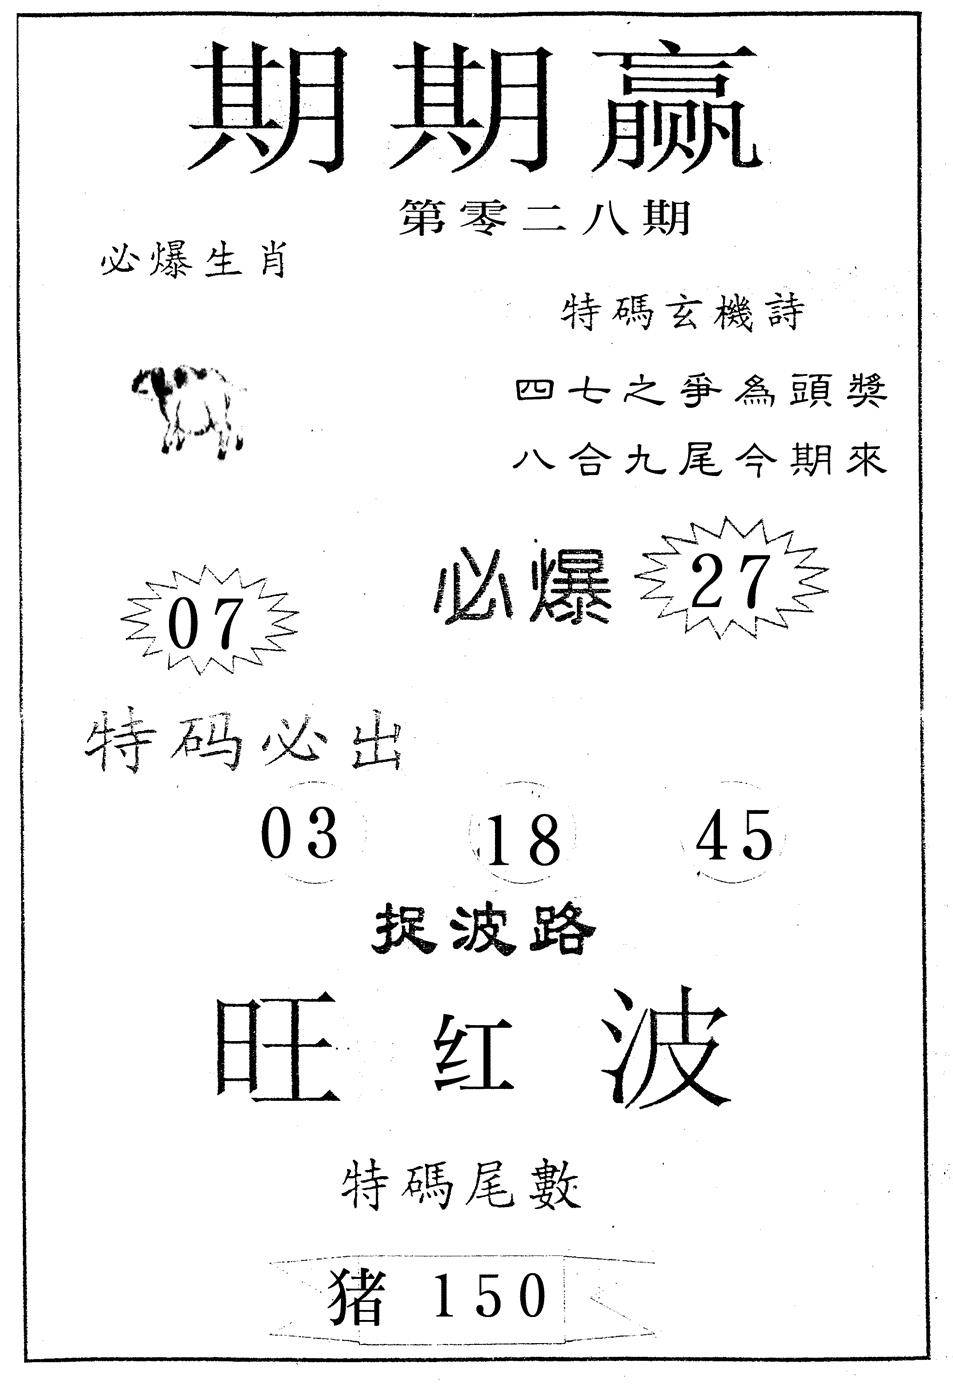 期期赢
第零二八期
必爆生肖
特碼玄機詩
四七之爭為頭獎
八合九尾今期來
必爆 27
07
特码必出
03 18 45
捉波路
旺红波
特碼尾數
猪 150